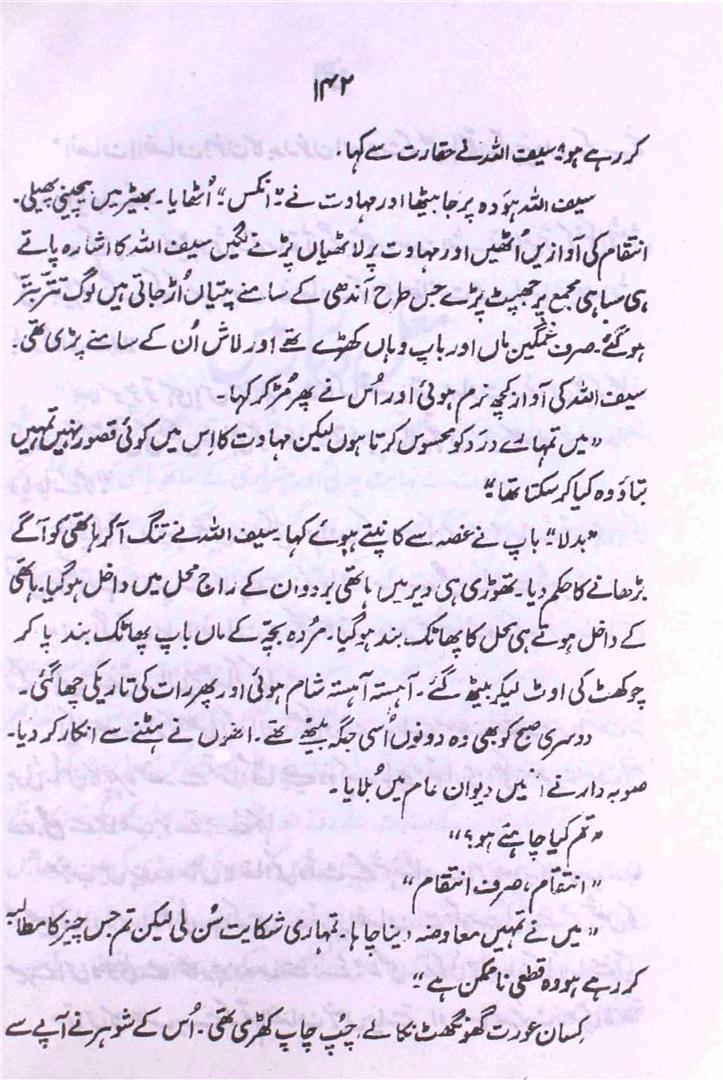 ۱۴۲
کر رہے ہو" سیف اللہ نے حقارت سے کہا۔
سیف اللہ ہودہ پر جا بیٹھا اور مہاوت نے "انکس" اُٹھایا۔ بھیڑ میں بیچینی پھیلی۔
انتقام کی آوازیں اُٹھیں اور مہاوت پر لاٹھیاں پڑنے لگیں سیف اللہ کا اشارہ پاتے
ہی سپاہی مجمع پر جھپٹ پڑے جس طرح آندھی کے سامنے پتیاں اُڑ جاتی ہیں لوگ تتّر بتّر
ہو گئے۔ صرف غمگین ماں اور باپ وہاں کھڑے تھے اور لاش اُن کے سامنے پڑی تھی۔
سیف اللہ کی آواز کچھ نرم ہوئی اور اُس نے پھر مُڑ کر کہا۔
"میں تمہارے درد کو محسوس کرتا ہوں لیکن مہاوت کا اِس میں کوئی قصور نہیں تمہیں
بتاؤ وہ کیا کر سکتا تھا"
"بدلا" باپ نے غصہ سے کانپتے ہوئے کہا۔ سیف اللہ نے تنگ آ کر ہاتھی کو آگے
بڑھانے کا حکم دیا۔ تھوڑی ہی دیر میں ہاتھی بردوان کے راج محل میں داخل ہو گیا۔ ہاتھی
کے داخل ہوتے ہی محل کا پھاٹک بند ہو گیا۔ مُردہ بچّہ کے ماں باپ پھاٹک بند پا کر
چوکھٹ کی اوٹ لیکر بیٹھ گئے۔ آہستہ آہستہ شام ہوئی اور پھر رات کی تاریکی چھا گئی۔
دوسری صبح کو بھی وہ دونوں اُسی جگہ بیٹھے تھے۔ انھوں نے ہٹنے سے انکار کر دیا۔
صوبہ دار نے انہیں دیوان عام میں بُلایا۔
"تم کیا چاہتے ہو؟"
"انتقام، صرف انتقام"
"میں نے تمہیں معاوضہ دینا چاہا۔ تمہاری شکایت سُن لی لیکن تم جس چیز کا مطالبہ
کر رہے ہو وہ قطعی ناممکن ہے"
کسان عورت گھونگھٹ نکالے چپ چاپ کھڑی تھی۔ اُس کے شوہر نے آپے سے